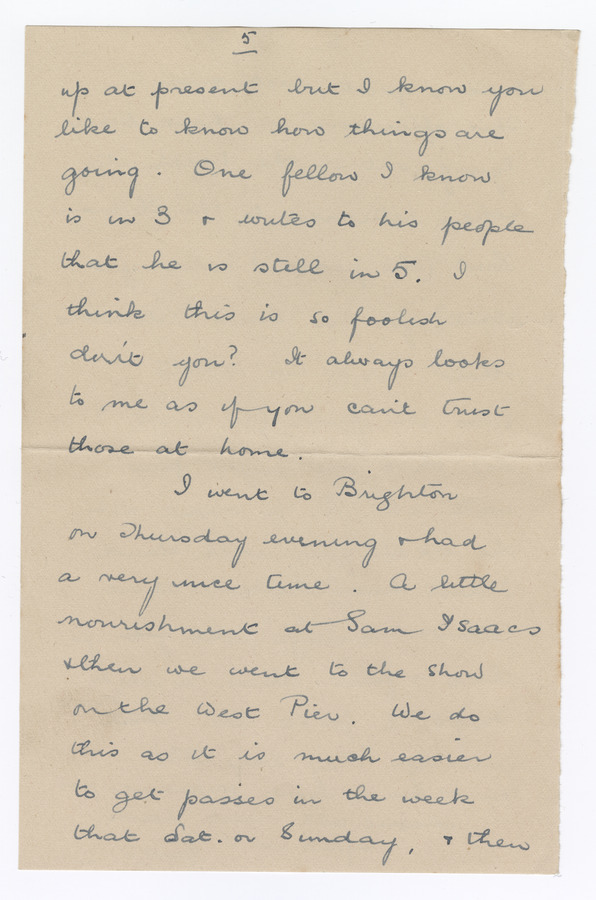 5
up at present but I know you
like to know how things are
going. One fellow I know
is in 3 & writes to his people
that he is still in 5. I
think this is so foolish
don't you? It always looks
to me as if you can't trust
those at home.
I went to Brighton
on Thursday evening & had
a very nice time. A little
nourishment at Sam Isaacs
& then we went to the show
on the West Pier. We do
this as it is much easier
to get passes in the week
that Sat. or Sunday, & then